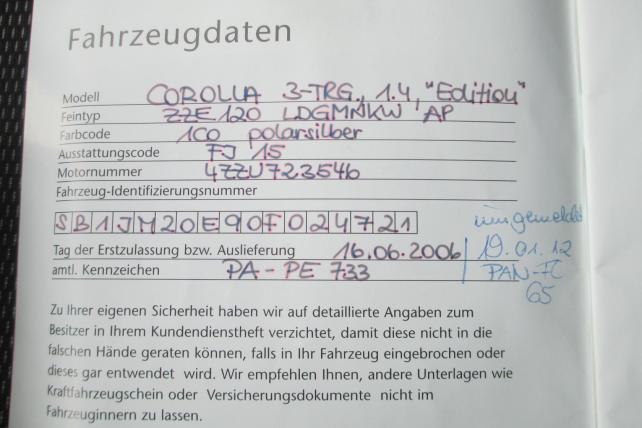 Fahrzeugdaten
Modell COROLLA 3-TRG., 1.4, "Edition"
Feintyp ZZE120 LDGMNKW AP
Farbcode 1C0 polarsilber
Ausstattungscode FJ 15
Motornummer 4ZZU723546
Fahrzeug-Identifizierungsnummer
SB1JM20E90F024721
umgemeldet
Tag der Erstzulassung bzw. Auslieferung 16.06.2006 19.01.12
amtl. Kennzeichen PA-PE 733 PAN-FC
65
Zu Ihrer eigenen Sicherheit haben wir auf detaillierte Angaben zum
Besitzer in Ihrem Kundendienstheft verzichtet, damit diese nicht in die
falschen Hände geraten können, falls in Ihr Fahrzeug eingebrochen oder
dieses gar entwendet wird. Wir empfehlen Ihnen, andere Unterlagen wie
Kraftfahrzeugschein oder Versicherungsdokumente nicht im
Fahrzeuginnern zu lassen.